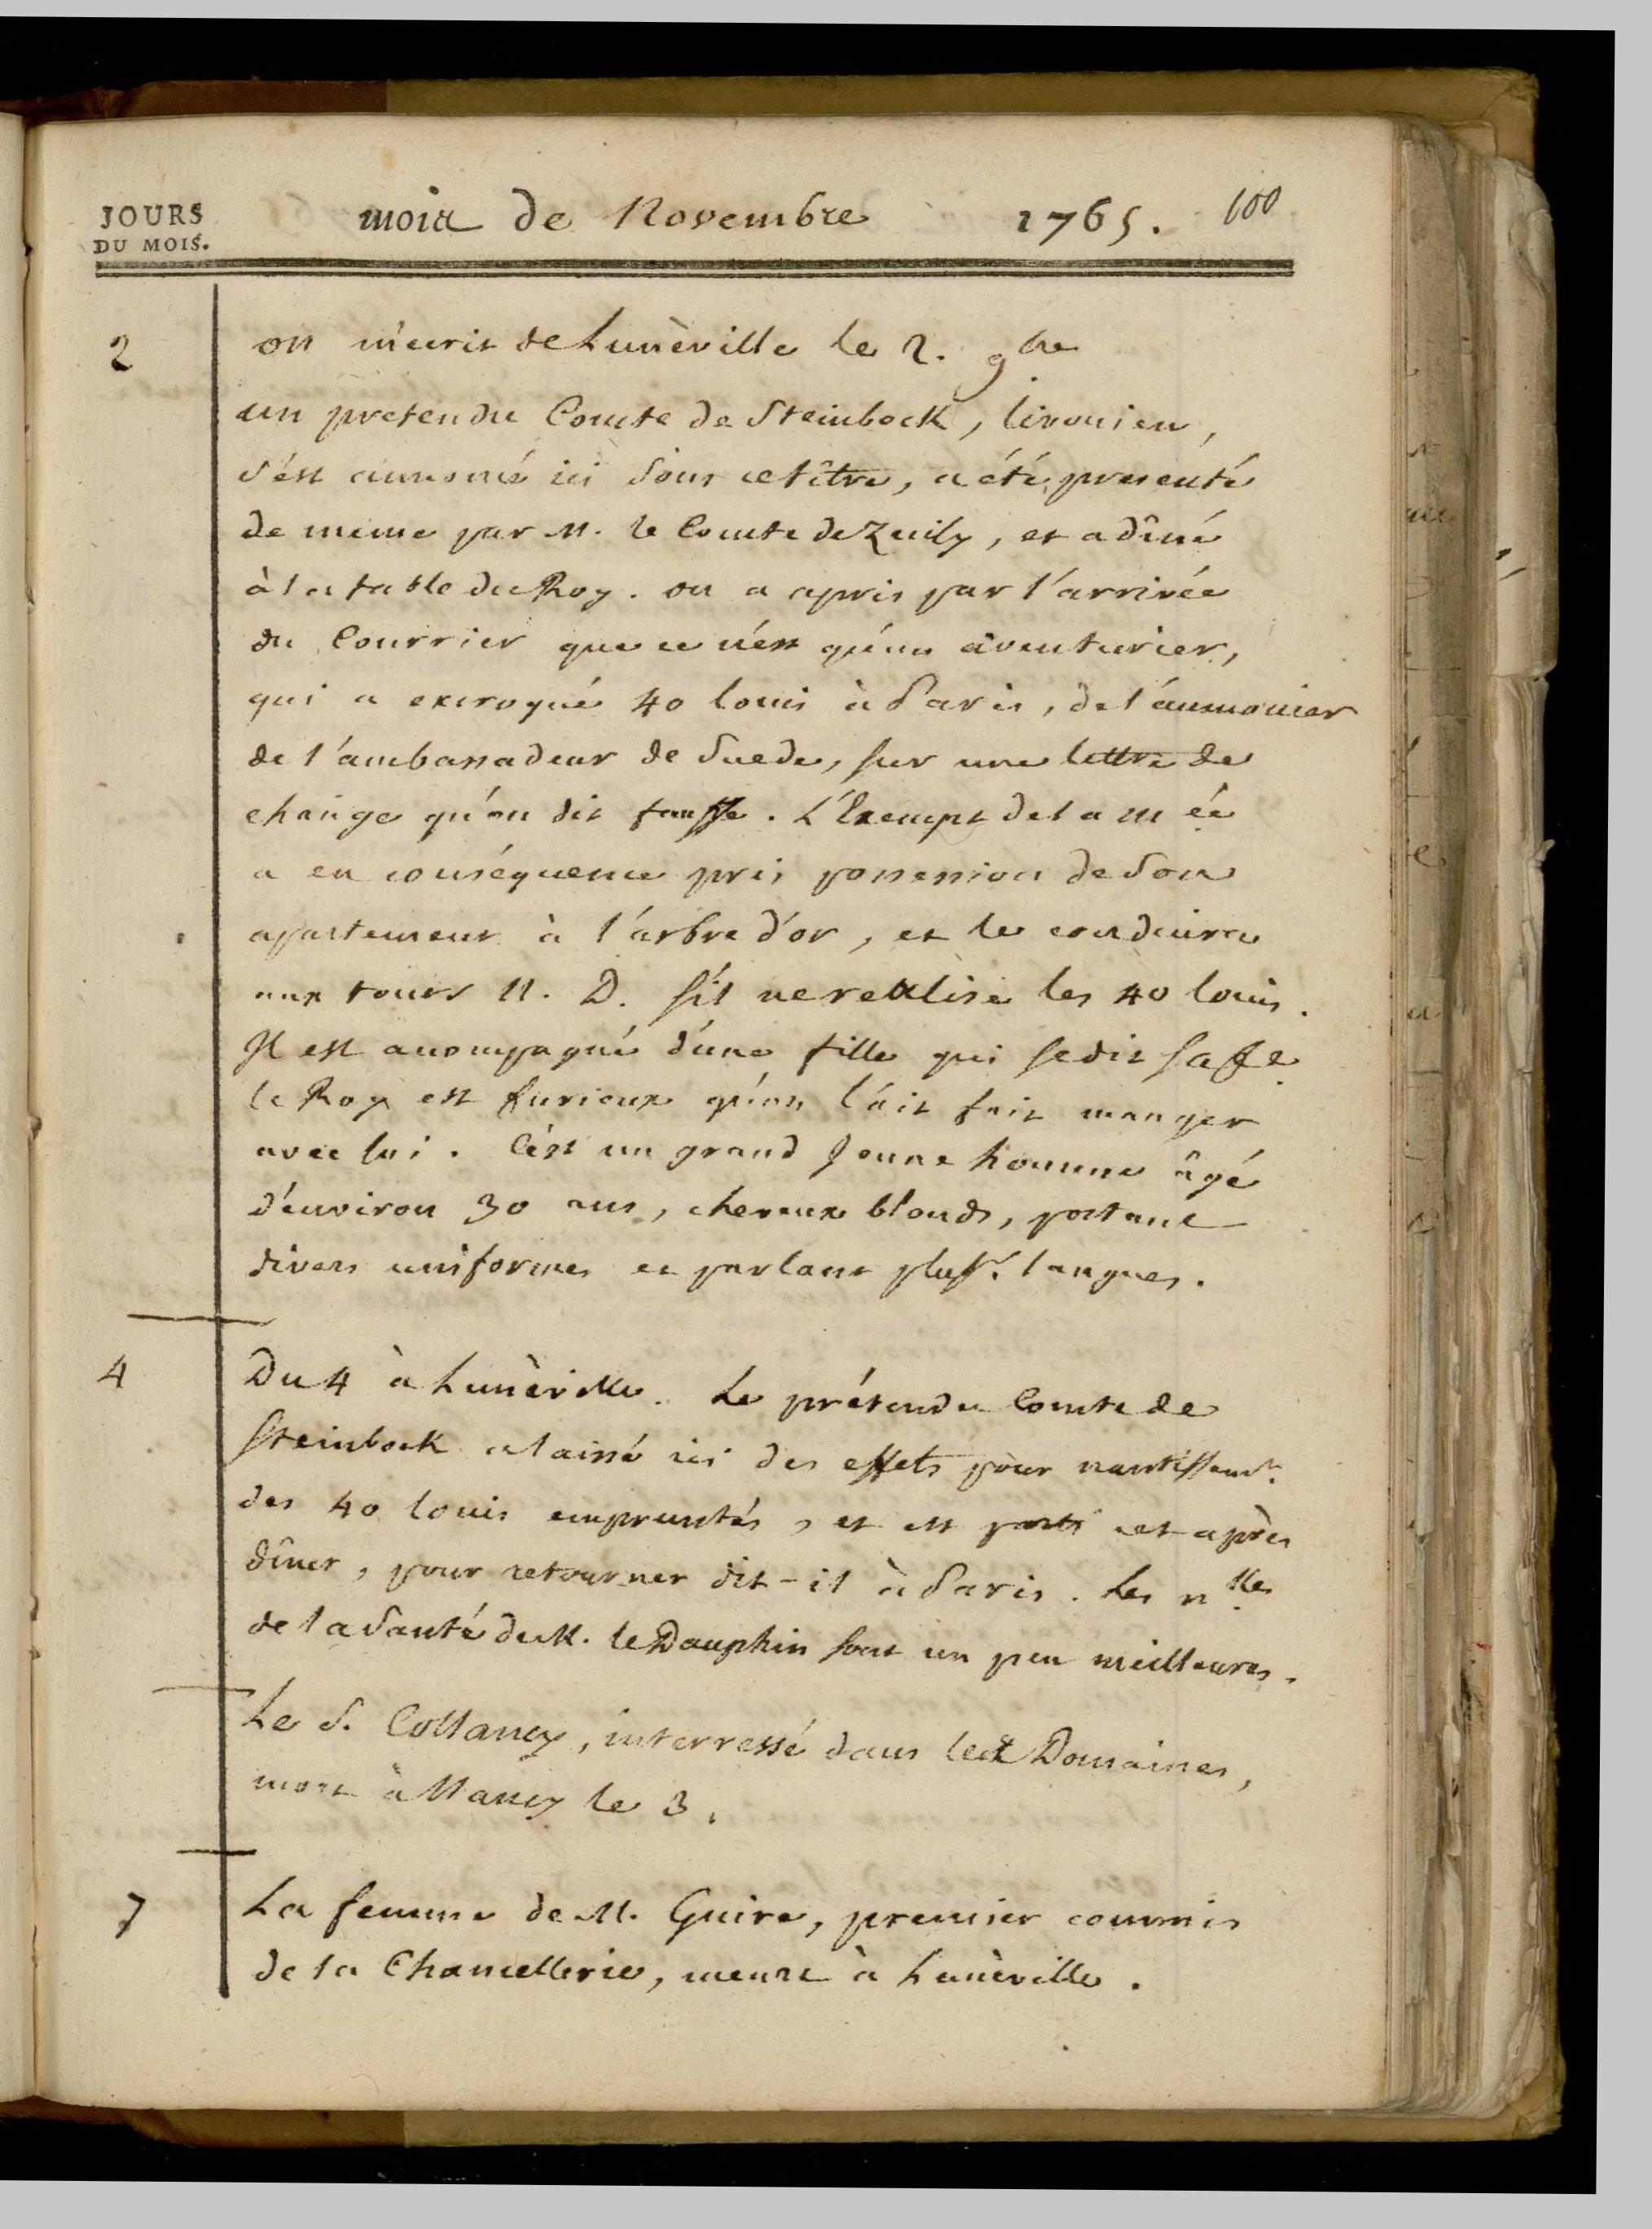 JOURS
DU MOIS.
mois de Novembre 1765. 100
2
on m'ecrit de Lunèville le 2. 9bre
un pretendu Comte de Steinbock, livonien,
s'est annoncé ici sous ce titre, a été presenté
de meme par M. le Comte de Zuily, et a dîné
à la table du Roy. on a apris par l'arrivée
du Courrier que ce n'est qu'un aventurier,
qui a excroqué 40 louis à Paris, de l'aumonier
de l'ambassadeur de Suede, sur une lettre de
change qu'on dit fausse. L'Exempt de la M ée
a en conséquence pris possession de son
apartement à l'arbre d'or, et le conduira
aux tours N. D. s'il ne réalise les 40 louis.
Il est acompagné d'une fille qui se dit sa fe.
le Roy est furieux qu'on l'ait fait manger
avec lui. C'est un grand Jeune homme âgé
d'environ 30 ans, cheveux blonds, portant
divers uniformes et parlant plusrs. langues.
4
Du 4 à Lunèville. Le prétendu Comte de
Steinbock a laissé ici des effets pour nantissemt.
des 40 louis empruntés, et est parti cet après
dîner, pour retourner dit-il à Paris. Les nlles
de la Santé de M. le Dauphin sont un peu meilleures.
Le S. Collancy, interressé dans les Domaines,
mort à Nancy le 3.
7
La femme de M. Guire, premier commis
de la Chancellerie, meurt à Lunèville.